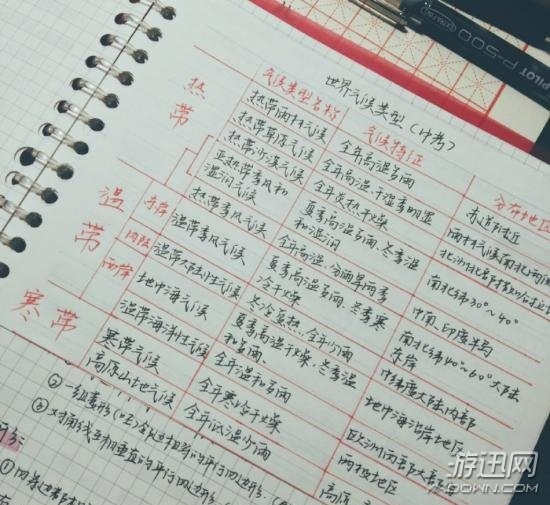 PILOT P-500
世界气候类型(中考)
气候类型名称 气候特征 分布地区
热带
热带雨林气候 全年高温多雨 赤道附近
热带草原气候 全年高温,干湿季明显 雨林气候南北两侧
热带沙漠气候 全年炎热干燥
亚热带季风和湿润气候 夏季高温多雨,冬季温和湿润 南北纬30°~40°
热带季风气候 全年高温,分两旱雨季 中南、印度半岛
温带
东岸 温带季风气候 夏季高温多雨,冬季寒冷干燥 南北纬40°~60°大陆东岸
内陆 温带大陆性气候 冬冷夏热,全年少雨 中纬度大陆内部
西岸 地中海气候 夏季高温干燥,冬季温和多雨 地中海沿岸地区
温带海洋性气候 全年温和多雨 欧洲西部
寒带
寒带气候 全年寒冷干燥 两极地区
高原山地气候 全年低温少雨 高原
② 一组菱形
③ 对角线互相垂直的平行四边形
①
游迅网
YXDOWN.COM